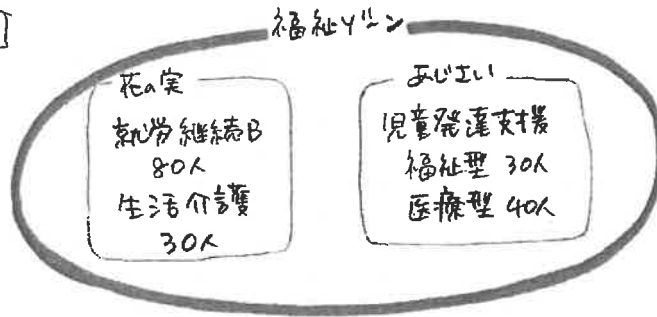 福祉ゾーン
花の実
就労継続B
80人
生活介護
30人
あじさい
児童発達支援
福祉型 30人
医療型 40人